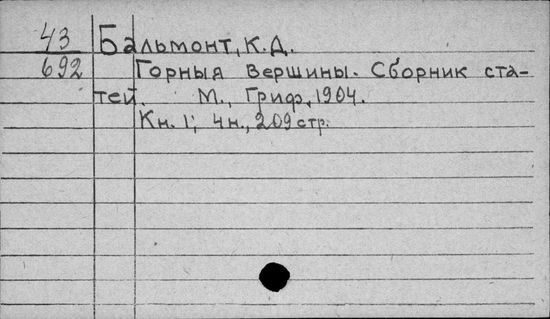 43 Бальмонт, К.Д.
692 Горныя вершины. Сборник ста-
тей. М., Гриф, 1904.
Кн. 1; 4н., 209 стр.